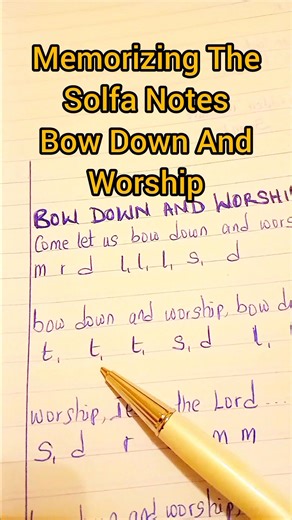 Memorizing The
Solfa Notes
Bow Down And
Worship
BOW DOWN AND WORSHIP
Come let us bow down and wors
m r d l, l, l, s, d
bow down and worship, bow do
t, t, t, s, d l,
worship, the Lord ...
s, d r m m
and worship,